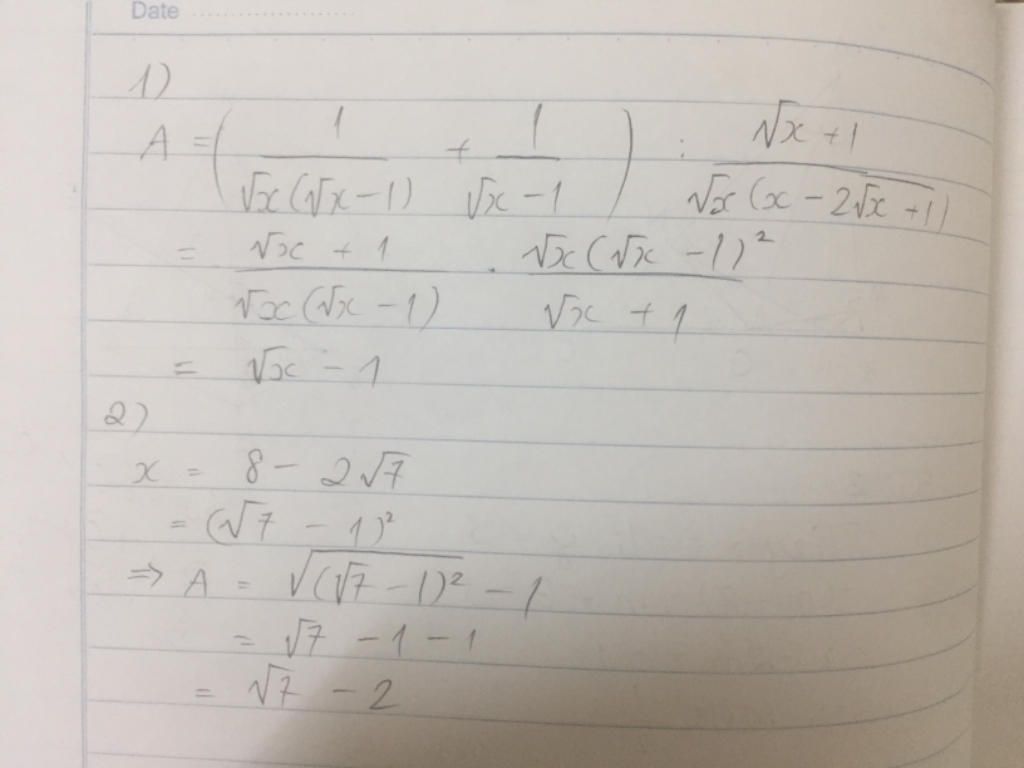 Date ....................
1)
A = ( 1 / √x(√x - 1) + 1 / √x - 1 ) : √x + 1 / √x (x - 2√x + 1)
= √x + 1 / √x(√x - 1) . √x(√x - 1)² / √x + 1
= √x - 1
2)
x = 8 - 2√7
= (√7 - 1)²
⇒ A = √(√7 - 1)² - 1
= √7 - 1 - 1
= √7 - 2